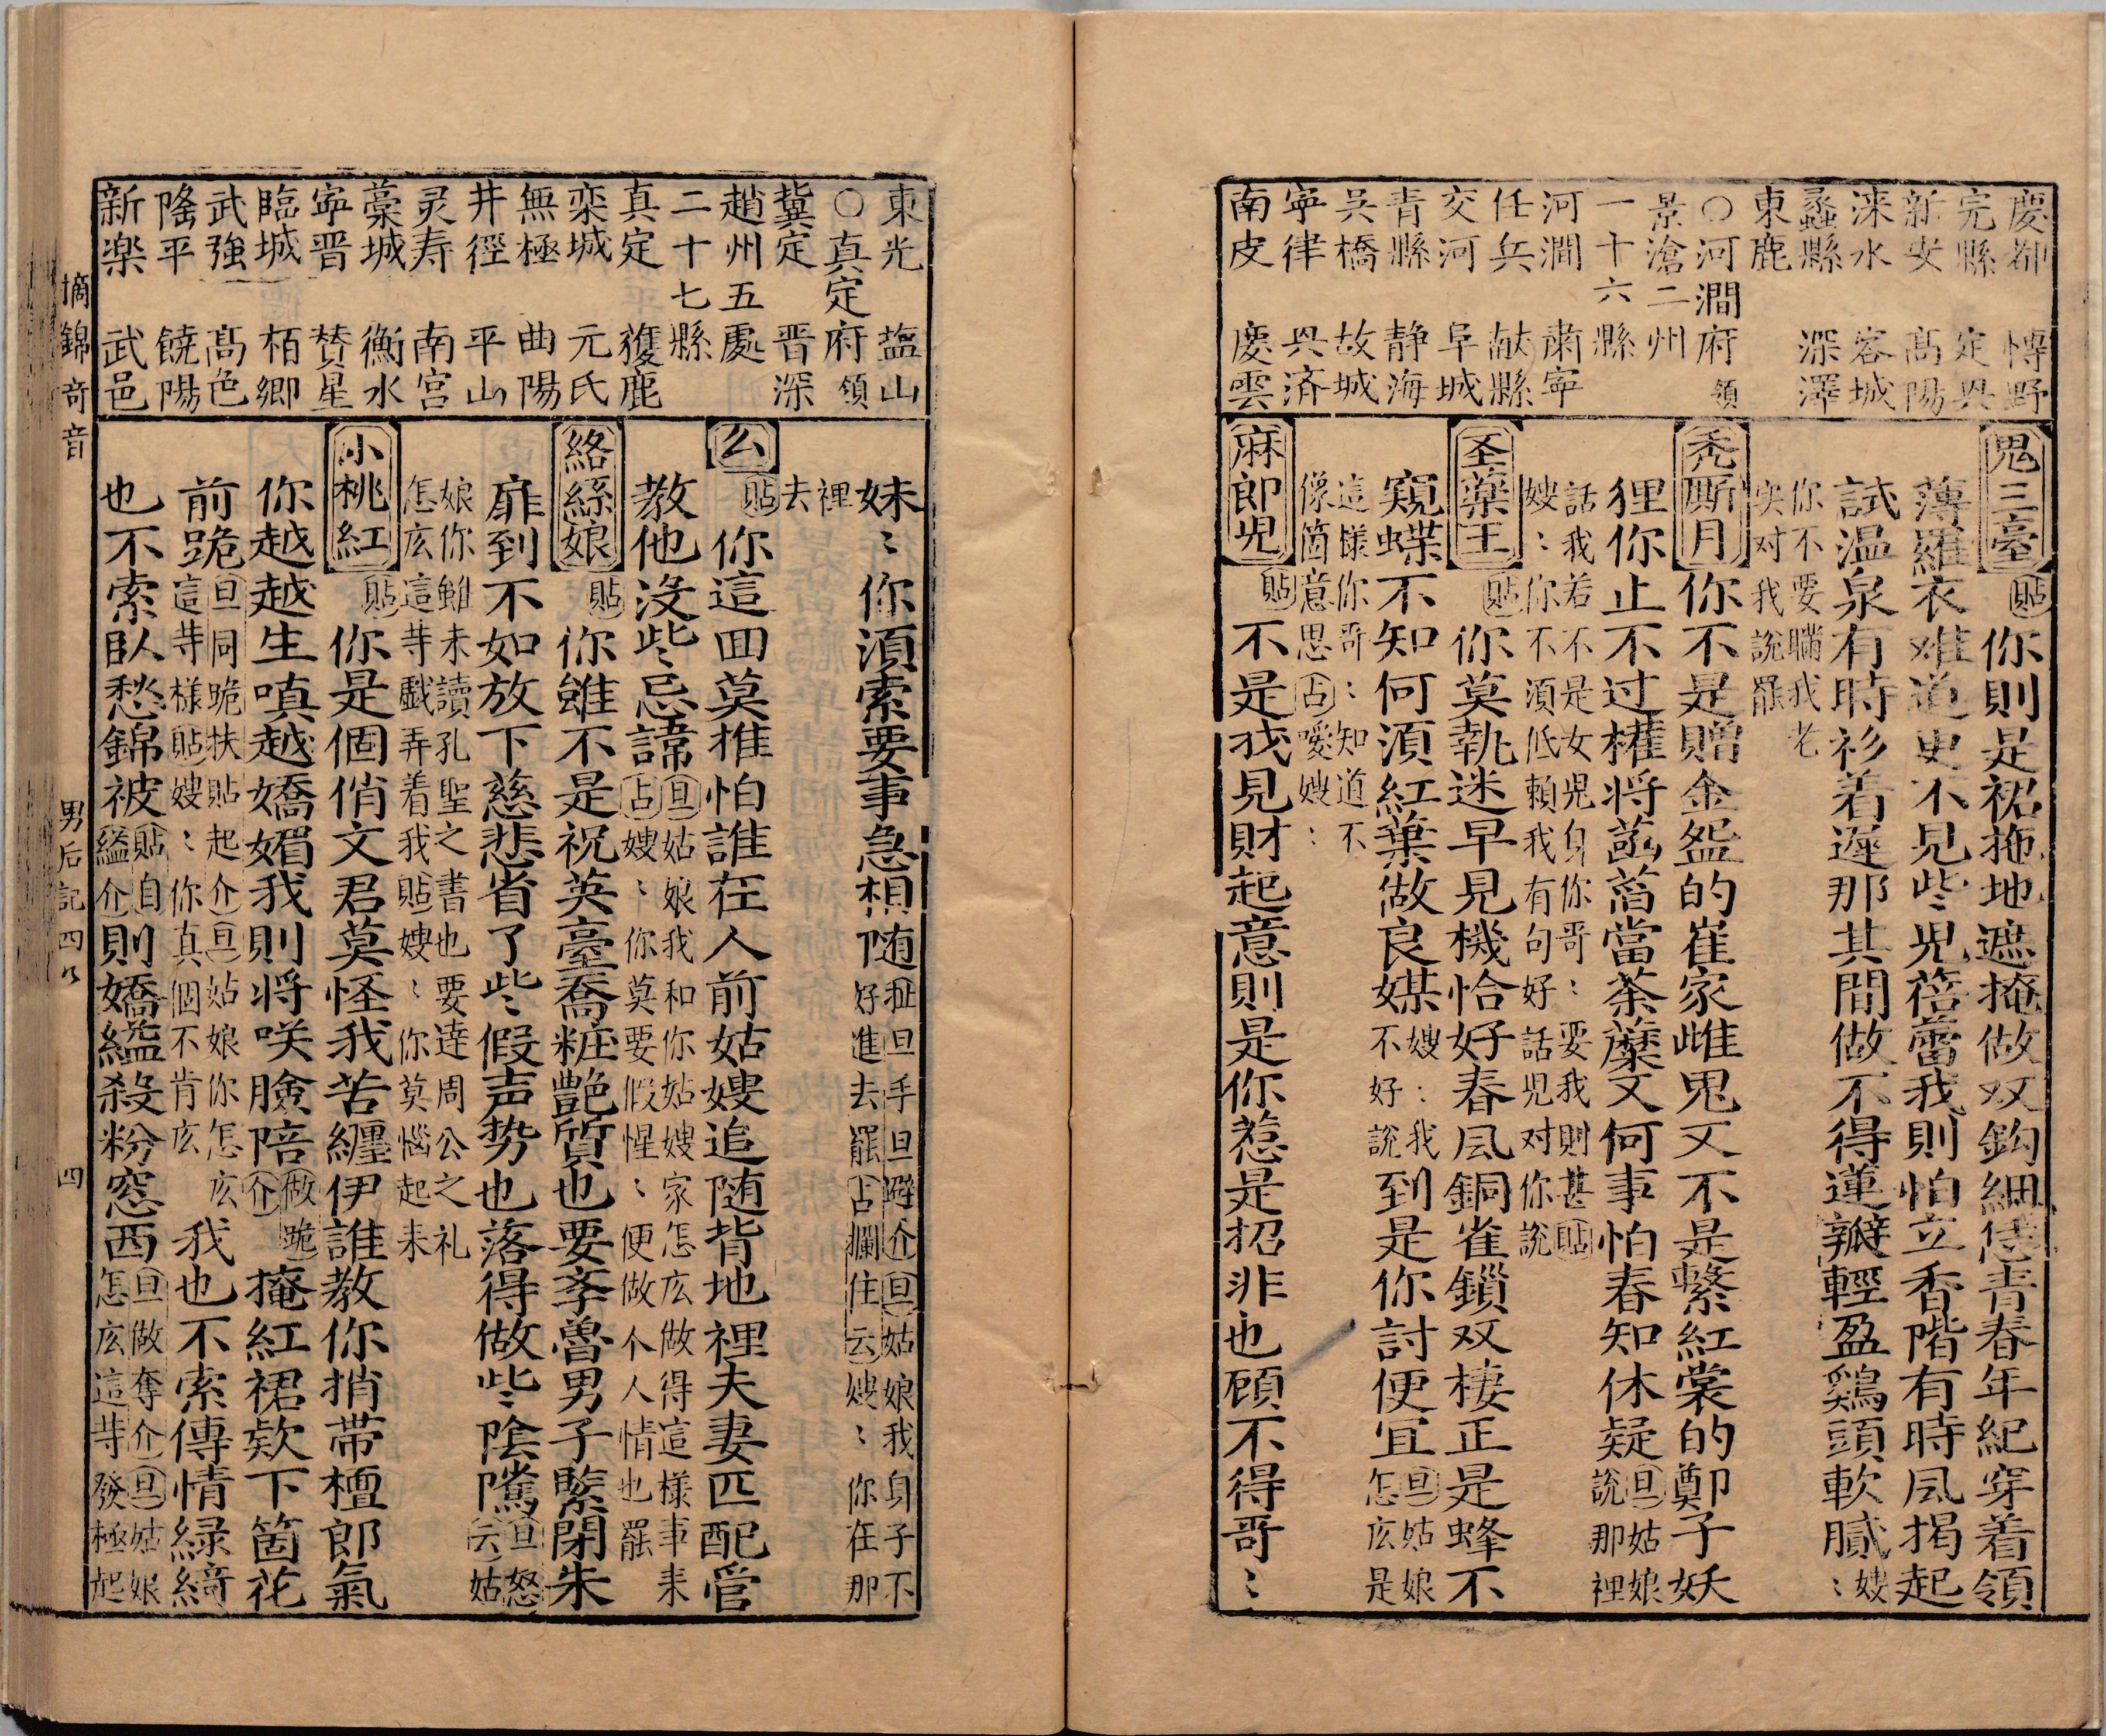 慶都 慱野
完縣 定具
新安 髙陽
涞水 容城
蠡縣 深澤
東鹿
○河澗府領
景滄二州
一十六縣
河澗 肅寕
任兵 献縣
交河 阜城
青縣 静海
吳橋 故城
寕律 具済
南皮 慶雲
鬼三臺 貼 你則是裙拖地遮掩做双鈎細恁青春年紀穿着領
薄羅衣难道更不見些〻兒蓓蕾我則怕立香階有時凨揭起
試温泉有時衫着遲那其間做不得蓮瓣輕盈鷄頭軟膩嫂〻
你不要瞞我老
实对我說罷
秃厮月 你不是贈金盌的崔家雌鬼又不是繫紅裳的鄭子妖
狸你止不过權将菡萏當荼蘼又何事怕春知休疑旦姑娘說那裡
話我若不是女兒身你哥〻要我則甚貼
嫂〻你不須低賴我有句好話兒对你說
圣藥王 貼 你莫執迷早見機恰好春凨銅雀鎖双棲正是蜂不
窺蝶不知何須紅葉做良媒嫂〻我不好說到是你討便宜旦姑娘怎庅是
這樣你哥〻知道不
像箇意思占嗳嫂〻
麻郎兒 貼 不是我見財起意則是你惹是招非也顧不得哥〻
東光 塩山
○真定府領
冀定 晋深
趙州五處
二十七縣
真定 獲鹿
栾城 元氏
無極 曲陽
井徑 平山
灵寿 南宫
藁城 衡水
寕晋 賛星
臨城 栢鄉
武強 髙色
隆平 饒陽
新楽 武邑
妹〻你湏索要事急想随扯旦手旦避介旦姑娘我身子不好進去罷占攔住云嫂〻你在那
裡
去
幺 貼 你這囬莫推怕誰在人前姑嫂追随背地裡夫妻匹配管
教他沒些〻忌諱旦姑娘我和你姑嫂家怎庅做得這樣事耒占嫂〻你莫要假惺〻便做个人情也罷
絡絲娘 貼 你雖不是祝英臺喬粧艶質也要李魯男子緊閉朱
扉到不如放下慈悲省了些〻假声势也落得做些〻陰隲旦怒云姑
娘你雖未讀孔聖之書也要逹周公之礼
怎庅這䒭戯弄着我貼嫂〻你莫惱起来
小桃紅 貼 你是個俏文君莫怪我苦纒伊誰教你捎带檀郎氣
你越越生嗔越嬌媚我則将咲臉陪做跪介掩紅裙欸下箇花
前跪旦同跪扶貼起介旦姑娘你怎庅這䒭様貼嫂〻你真個不肯庅我也不索傳情緑綺
也不索臥愁錦被貼自縊介則嬌縊殺粉窓西旦做奪介旦姑娘怎庅這䒭發極起
摘錦竒音
男后記四乆
四